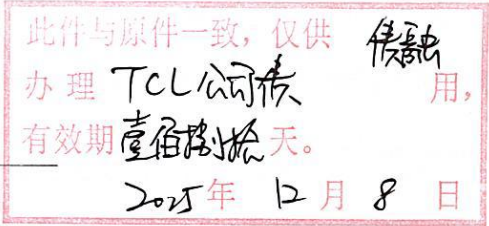 此件与原件一致，仅供 债融
办理 TCL公司债 用，
有效期壹佰捌拾天。
2025年 12月 8 日